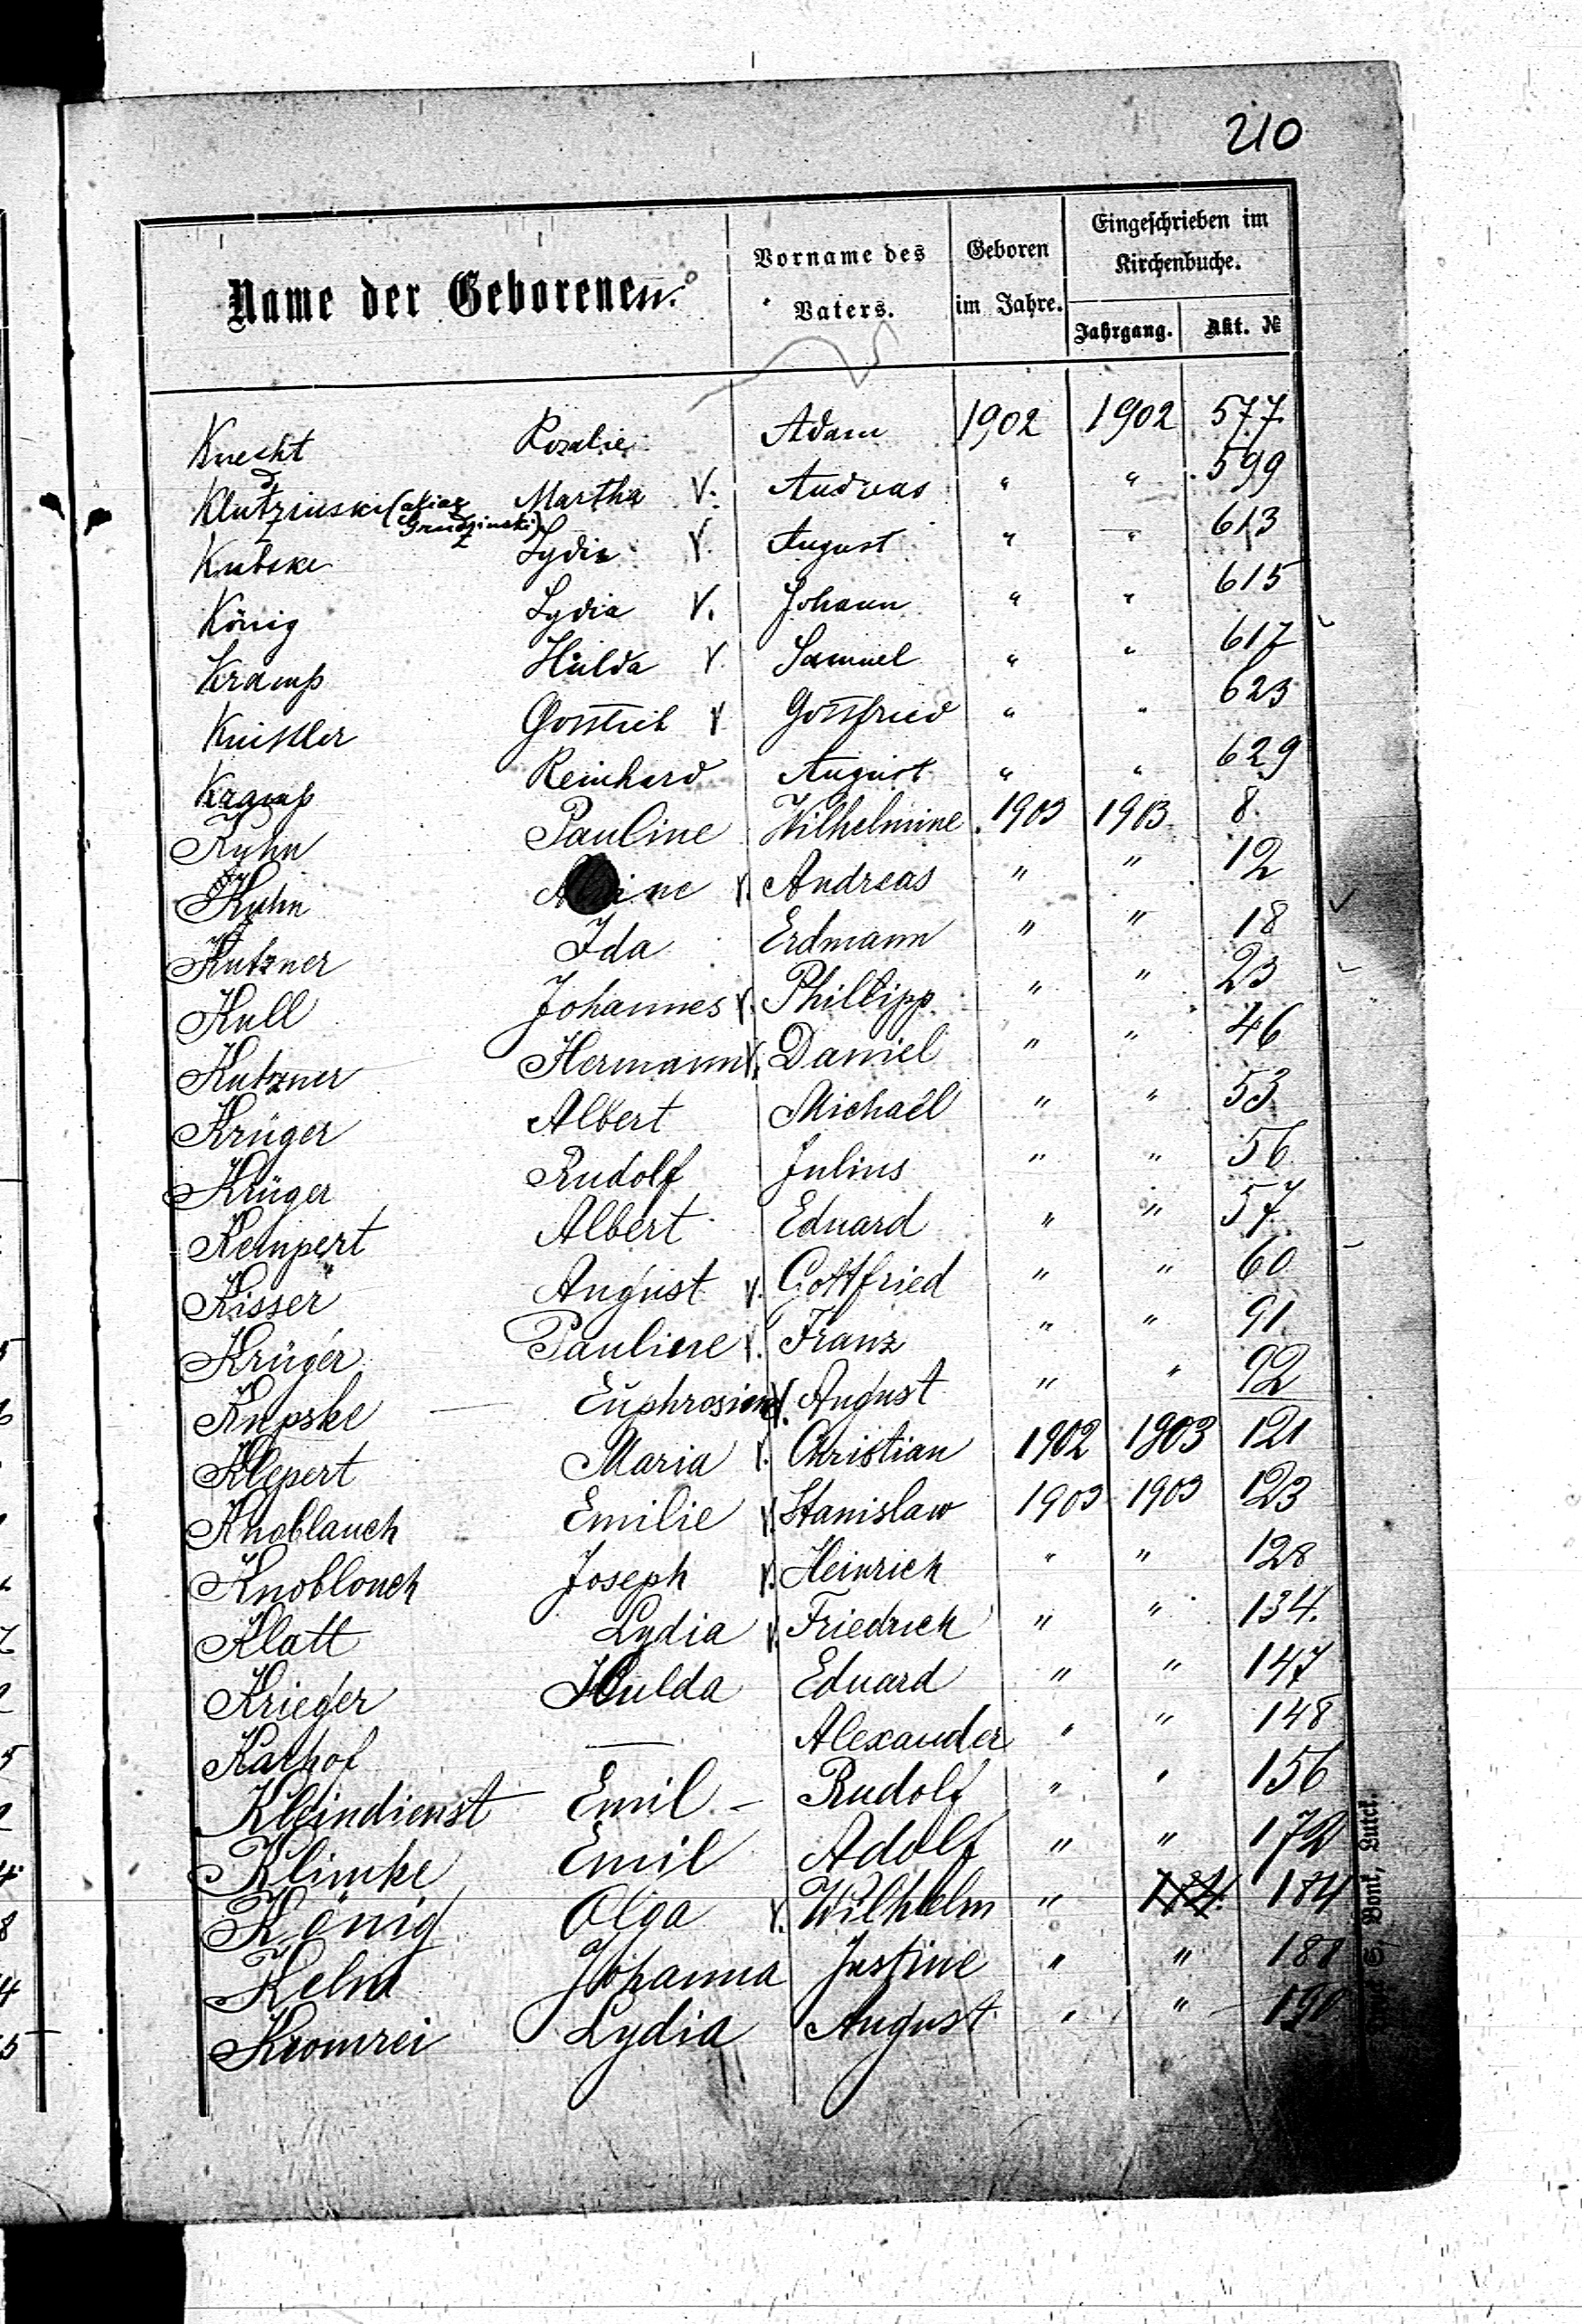 210
Name der Geborenen.
Vorname des Vaters.
Geboren im Jahre.
Eingeschrieben im Kirchenbuche.
Jahrgang. Akt. №
Knecht Rozalie Adam 1902 1902 577.
Klutzinski (alias Grudzinski) Martha V. Andreas " " 599
Kubske Lydia V. August " " 613
König Lydia V. Johann " " 615
Kramp Hulda V. Samuel " " 617
Kneisler Gottlieb V Gottfried " " 623
Kramp Reinhard August " " 629
Kuhn Pauline Wilhelmine 1903 1903 8.
Kuhn V. Andreas " " 12
Kutzner Ida Erdmann " " 18
Kull Johannes V. Phillipp " " 23
Kutzner Hermann V. Daniel " " 46
Krüger Albert Michael " " 53
Krüger Rudolf Julius " " 56
Kempert Albert Eduard " " 57
Kisser August V. Gottfried " " 60
Krüger Pauline V. Franz " " 91
Kupske — V. August " " 92
Klepert Maria V. Christian 1902 1903 121
Knoblauch Emilie V. Stanislaw 1903 1903 123
Knoblouch Joseph V. Heinrich " " 128
Klatt Lydia V. Friedrich " " 134.
Krieger Hulda Eduard " " 147
Karhof — Alexander " " 148
Kleindienst Emil — Rudolf " " 156
Klimke Emil Adolf " " 172
König Olga V. Wilhelm " 184. 184
Kelm Johanna Justine " " 188
Kromrei Lydia August " " 190